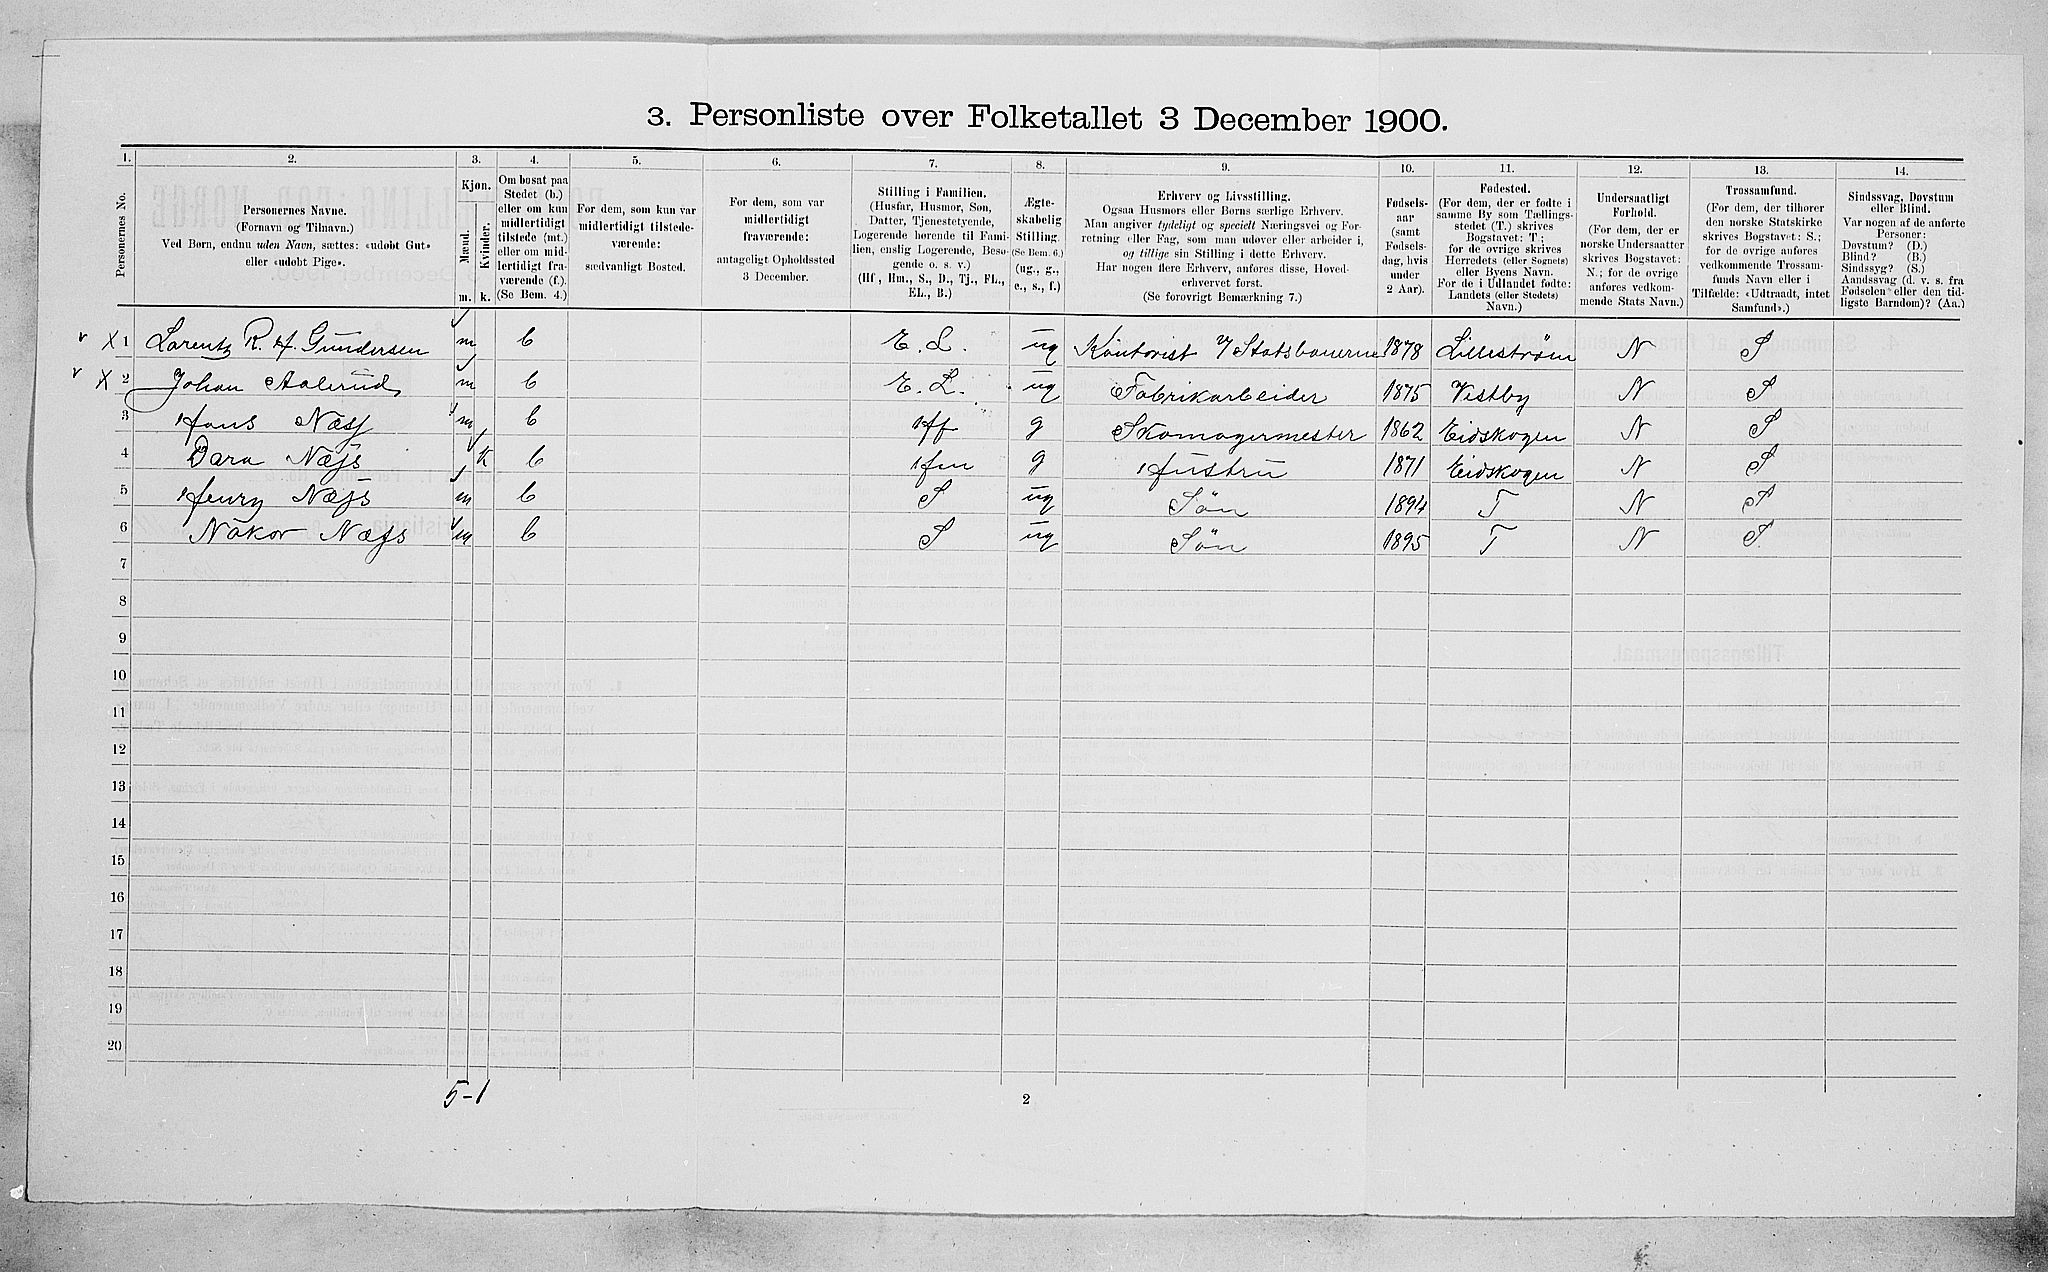 3. Personliste over Folketallet 3 December 1900.
1. 2. 3. 4. 5. 6. 7. 8. 9. 10. 11. 12. 13. 14.
Personernes No.
Personernes Navne.
(Fornavn og Tilnavn.)
Ved Børn, endnu uden Navn, sættes: «udøbt Gut»
eller «udøbt Pige».
Kjøn.
Mænd. Kvinder.
m. k.
Om bosat paa
Stedet (b.)
eller om kun
midlertidigt
tilstede (mt.)
eller om mid-
lertidigt fra-
værende (f.).
(Se Bem. 4.)
For dem, som kun var
midlertidigt tilstede-
værende:
sædvanligt Bosted.
For dem, som var
midlertidigt
fraværende:
antageligt Opholdssted
3 December.
Stilling i Familien.
(Husfar, Husmor, Søn,
Datter, Tjenestetyende,
Logerende hørende til Fami-
lien, enslig Logerende, Besø-
gende o. s. v.)
(Hf., Hm., S., D., Tj., FL.,
EL., B.)
Ægte-
skabelig
Stilling.
(Se Bem. 6.)
(ug., g.,
e., s., f.)
Erhverv og Livsstilling.
Ogsaa Husmors eller Børns særlige Erhverv.
Man angiver tydeligt og specielt Næringsvei og For-
retning eller Fag, som man udøver eller arbeider i,
og tillige sin Stilling i dette Erhverv.
Har nogen flere Erhverv, anføres disse, Hoved-
erhvervet først.
(Se forøvrigt Bemærkning 7.)
Fødsels-
aar
(samt
Fødsels-
dag, hvis
under
2 Aar).
Fødested.
(For dem, der er fødte i
samme By som Tællings-
stedet (T.) skrives
Bogstavet: T;
for de øvrige skrives
Herredets (eller Sognets)
eller Byens Navn.
For de i Udlandet fødte:
Landets (eller Stedets)
Navn.)
Undersaatligt
Forhold.
(For dem, der er
norske Undersaatter
skrives Bogstavet:
N.; for de øvrige
anføres vedkom-
mende Stats Navn.)
Trossamfund.
(For dem, der tilhører
den norske Statskirke
skrives Bogstavet: S.;
for de øvrige anføres
vedkommende Trossam-
funds Navn eller i
Tilfælde: «Udtraadt, intet
Samfund».)
Sindssvag, Døvstum
eller Blind.
Var nogen af de anførte
Personer:
Døvstum? (D.)
Blind? (B.)
Sindssyg? (S.)
Aandssvag (d. v. s. fra
Fødselen eller den tid-
ligste Barndom)? (Aa.)
v X 1 Lorentz R. H. Gundersen m b E. L. ug Kontorist v/ Statsbanerne 1878 Lillestrøm N S
v X 2 Johan Aalerud m b E. L. ug Fabrikarbeider 1875 Vestby N S
3 Hans Næss m b Hf g Skomagermester 1862 Eidskogen N S
4 Næss k b Hm g Hustru 1871 Eidskogen N S
5 Henry Næss m b S ug Søn 1894 T N S
6 Næss m b S ug Søn 1895 T N S
7
8
9
10
11
12
13
14
15
16
17
18
19
20
5-1
2